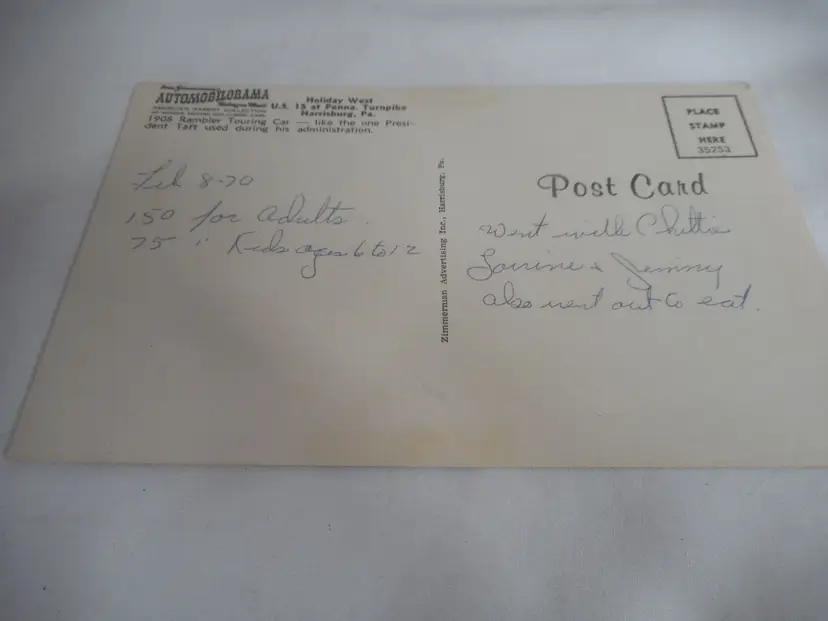 AUTOMOBILORAMA
Holiday West
U.S. 15 at Penna. Turnpike
Harrisburg, Pa.
1908 Rambler Touring Car — like the one Presi-
dent Taft used during his administration.
Feb 8-70
150 for adults.
75 " Kids ages 6 to 12
Zimmerman Advertising Inc., Harrisburg, Pa.
PLACE
STAMP
HERE
35253
Post Card
Went with
Lorrine & Jimmy
also went out to eat.